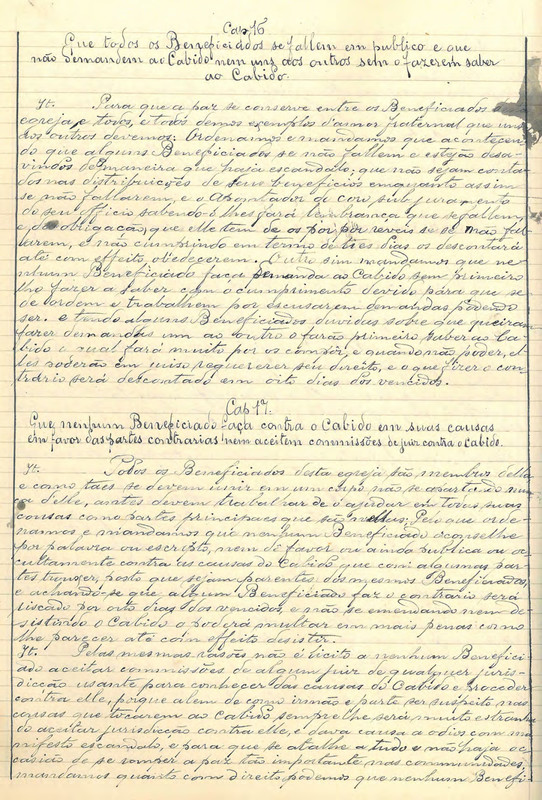 Cap 16
Que todos os Beneficiados se fallem em publico e que
não demandem ao Cabido nem uns aos outros sem o fazerem saber
ao Cabido.
It. Para que a paz se conserve entre os Beneficiados
egreja e todos, e todos demos exemplos d'amor fraternal que uns
aos outros devemos: Ordenamos e mandamos que acontecen
do que alguns Beneficiados se não fallem e estejão desa-
vindos de maneira que haja escandalo, que não sejam conta-
dos nas distribuições de seus beneficios emquanto assim
se não fallarem, e o Apontador do coro sub juramento
do seu officio sabendo-o lhes fará lembrança que se fallem
e da obrigação, que elle tem de os por por reveis se se não fal
larem, e não cumprindo em termo de tres dias os descontará
até com effeito obedecerem. Outro sim mandamos que ne-
nhum Beneficiado faça demanda ao Cabido sem primeiro
lho fazer a saber com o cumprimento devido pára que se
de ordem e trabalhem por escusarem demandas podendo
ser. e tendo alguns Beneficiados duvidas sobre que queiram
fazer demandas um ao outro o farão primeiro saber ao Ca-
bido o qual fará muito por os compôr, e quando não poder, el-
les poderão em juizo requererer seu direito, e o que fizer o con-
trario será descontado em oito dias dos vencidos.
Cap 17.
Que nenhum Beneficiado faça contra o Cabido em suas causas
em favor das partes contrarias nem aceitem commissões de juiz contra o Cabido.
It. Todos os Beneficiados desta egreja são membros della
e como taes se devem unir em um corpo, não se apartando nun
ca delle, antes devem trabalhar de o ajudar em todas suas
cousas como partes principaes que são nellas; Pelo que orde-
namos e mandamos que nenhum Beneficiado aconselhe
por palavra ou escripto, nem dê favor ou ainda publica ou oc-
cultamente contra as causas do Cabido que com algumas par-
tes trouxer, posto que sejam parentes dos mesmos Beneficiados,
e achando-se que algum Beneficiado faz o contrario será
riscado por oito dias dos vencidos, e não se emendando nem de-
sistindo o Cabido o poderá multar em mais penas como
lhe parecer até com effeito desistir.
It. Pelas mesmas rasões não é licito a nenhum Benefici-
ado aceitar commissões de algum juiz de qualquer juris-
dicção usante para conhecer das causas do Cabido e proceder
contra elle, porque alem de como irmão e parte ser suspeito nas
cousas que tocarem ao Cabido sempre lhe será muito estranha
do aceitar jurisdicção contra elle, e dava causa a odios com ma-
nifesto escandalo, e para que se atalhe a tudo e não haja oc-
casião de se romper a paz tão importante nas communidades;
mandamos quanto com direito podemos que nenhum Benefi-